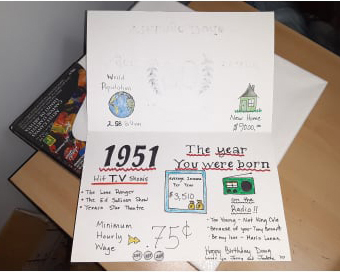 World
Population
2.58 Billion
New Home
$9000.00
1951
The year
You were born
Hit T.V Shows
• The Lone Ranger
• The Ed Sullivan Show
• Texaco Star Theatre
Average Income
Per Year
$3,510
on the
Radio!!
- Too Young - Nat King Cole
- Because of you - Tony Bennett
- Be my love - Mario Lanza
Minimum
Hourly
Wage
75¢
Happy Birthday Doug